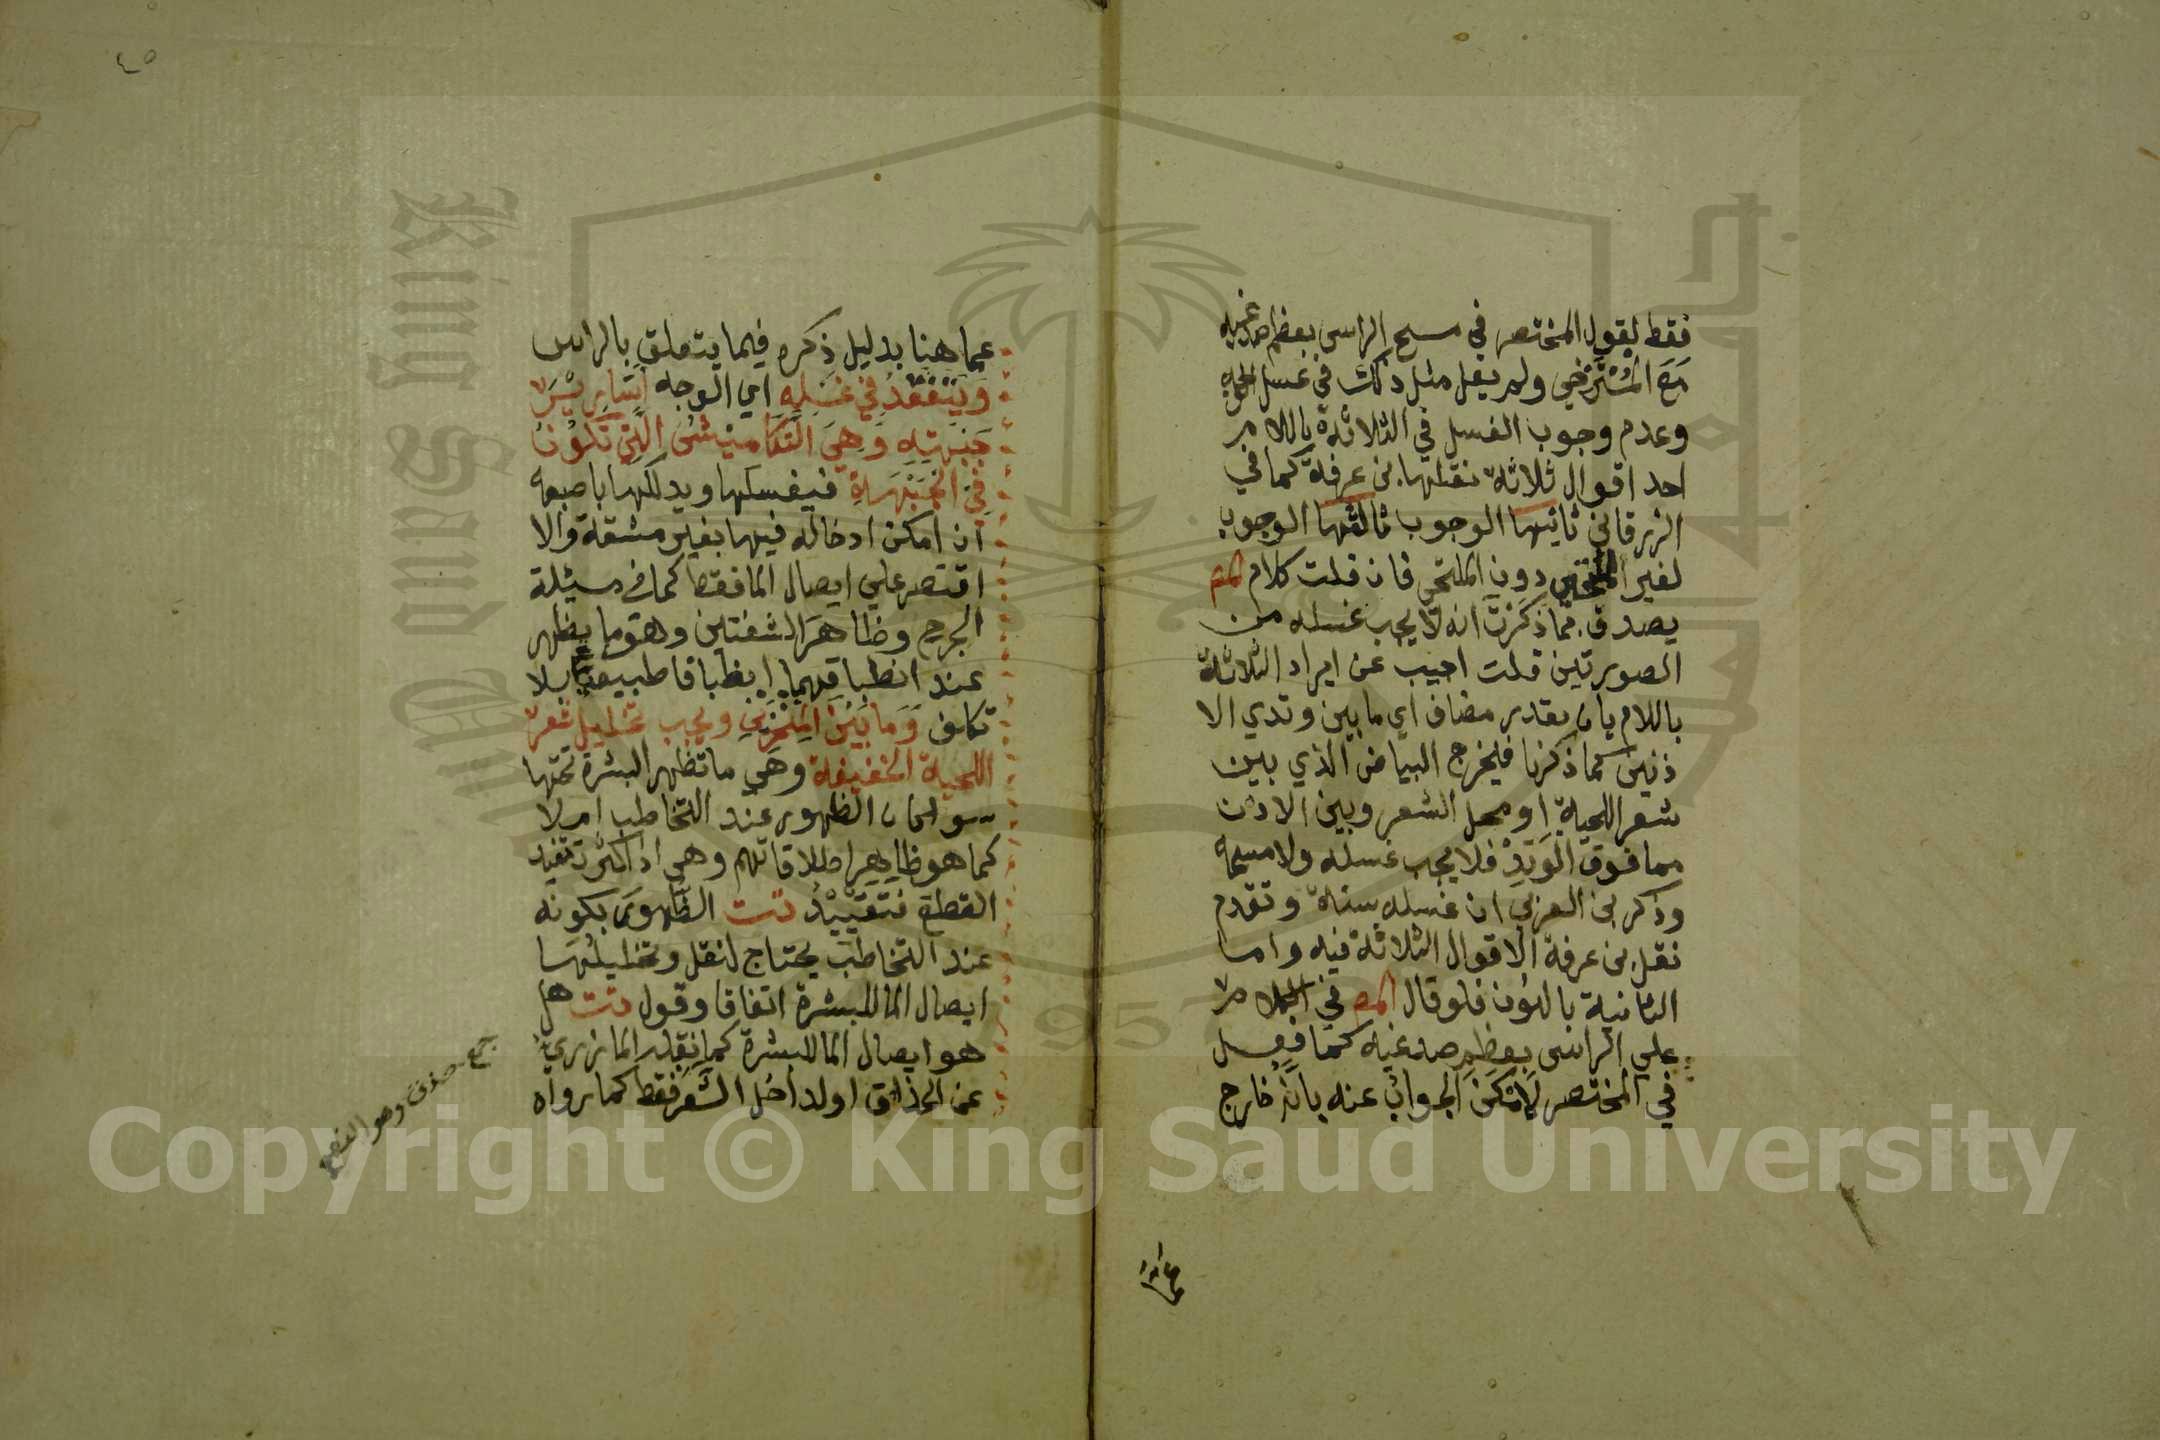 فقط لقول المختصر في مسح الراس بعظم صدغيه
مع المسترخي ولم يقل مثل ذلك في غسل الوجه
وعدم وجوب الغسل في الثلاثة باللام
احد اقوال ثلاثة نقلها بن عرفة كما في
الزرقاني ثانيها الوجوب ثالثها الوجوب
لغير الملتحي دون الملتحي فان قلت كلام المص
يصدق مما ذكرت انه لا يجب غسله من
الصورتين قلت اجيب عن ايراد الثلاثة
باللام بان يقدر مضاف اي ما بين وتدي الا
ذنين كما ذكرنا فيخرج البياض الذي بين
شعر اللحية او محل الشعر وبين الاذن
مما فوق الوتد فلا يجب غسله ولا مسحه
وذكر بن العربي ان غسله سنة وتقدم
نقل بن عرفة الاقوال الثلاثة فيه واما
الثانية بالنون فلو قال المص في الكلام
علي الراس بعظم صدغيه كما فعل
في المختصر لامكن الجواب عنه بانه خارج
عما هنا
٤٥
عما هنا بدليل ذكره فيما يتعلق بالراس
ويتفقد في غسله اي الوجه اسارير
جبهته وهي التكاميش التي تكون
في الجبهة فيغسلها ويدلكها باصبعه
ان امكن ادخاله فيها بغير مشقة والا
اقتصر علي ايصال الما فقط كما في مسئلة
الجرح وظاهر الشفتين وهو ما يظهر
عند انطباقهما انطباقا طبيعيا بلا
تكلف وما بين المنخرين ويجب تخليل شعر
اللحية الخفيفة وهي ما تظهر البشرة تحتها
سوا كان الظهور عند التخاطب ام لا
كما هو ظاهر اطلاقاتهم وهي اذا كثرت تفيد
القطع فتقييد تت الظهور بكونه
عند التخاطب يحتاج لنقل وتخليلها
ايصال الما للبشرة اتفاقا وقول تت هل
هو ايصال الما للبشرة كما نقله المازري
عن الحذاق او لداخل الشعر فقط كما رواه
جمع حذق وهو الفهم
Copyright © King Saud University
King Saud University
1957